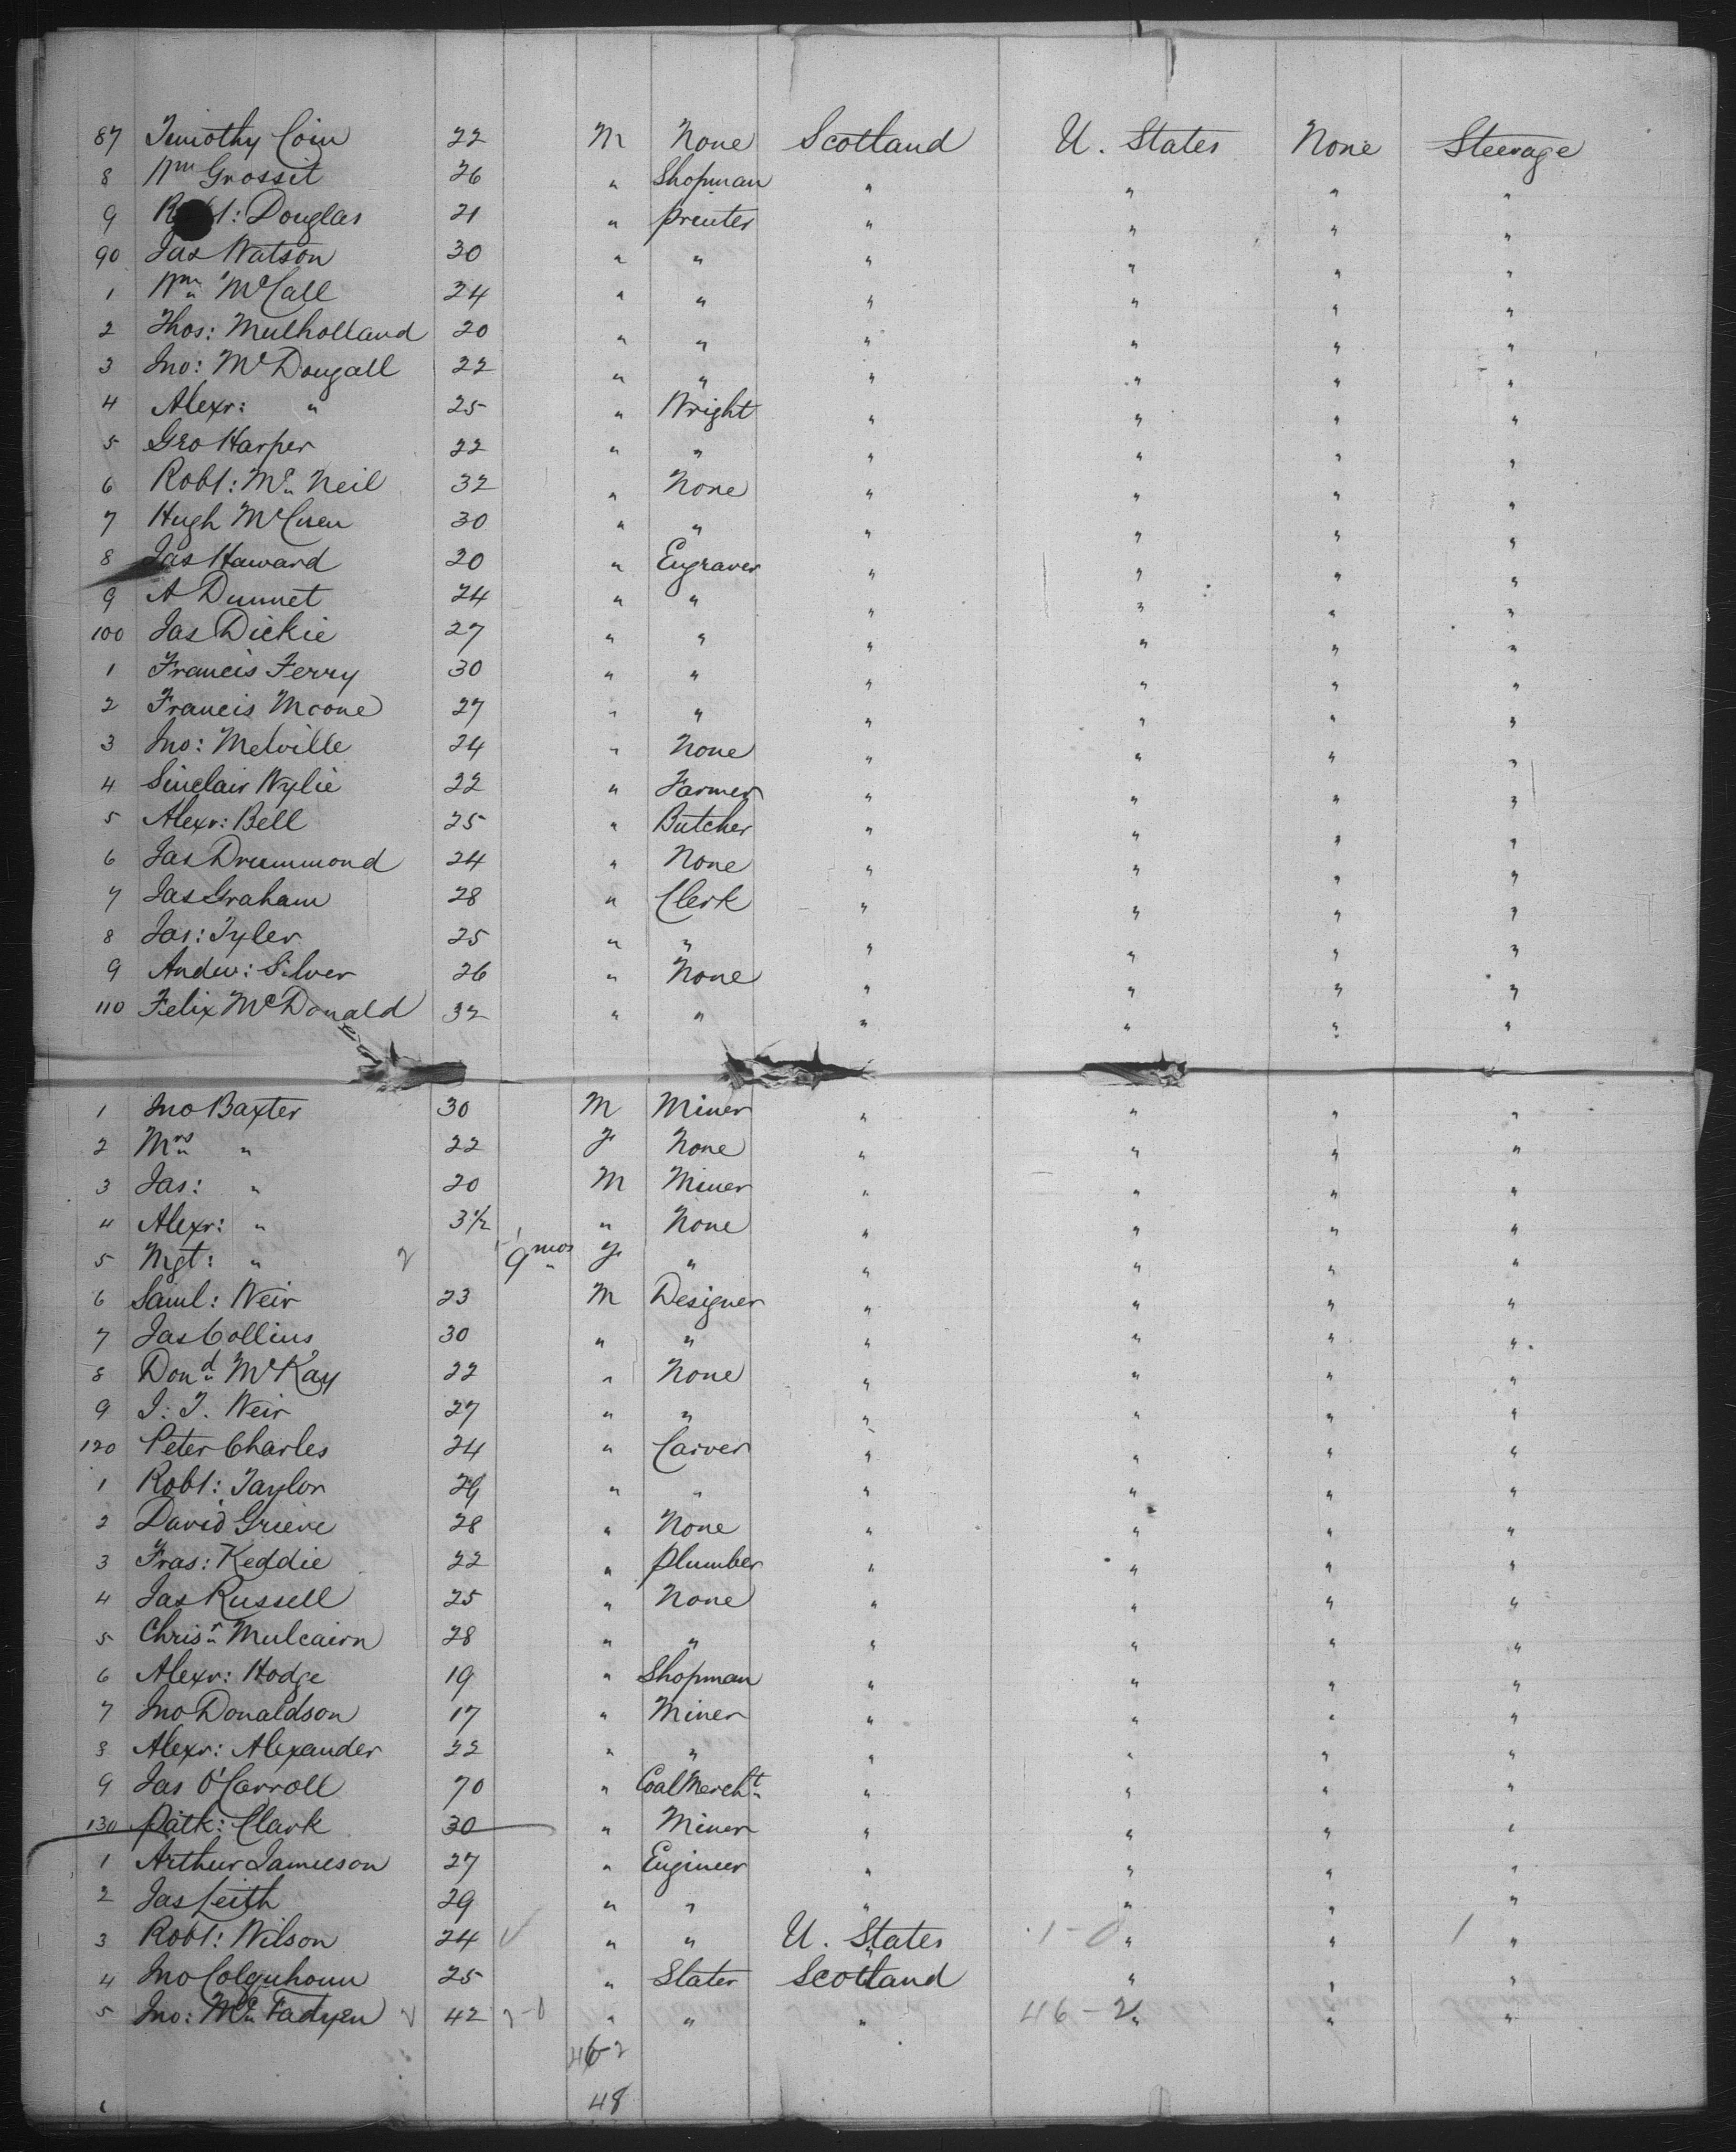 87 Timothy Coin 22 M None Scotland U. States None Steerage
8 Wm Grossit 26 " Shopman " " " "
9 Robt: Douglas 21 " Printer " " " "
90 Jas Watson 30 " " " " " "
1 Wm McCall 24 " " " " " "
2 Thos: Mulholland 20 " " " " " "
3 Jno: McDougall 22 " " " " " "
4 Alexr: " 25 " Wright " " " "
5 Geo Harper 22 " " " " " "
6 Robt: Mc Neil 32 " None " " " "
7 Hugh McCuen 30 " " " " " "
8 Jas Haward 20 " Engraver " " " "
9 A Dunnet 24 " " " " " "
100 Jas Dickie 27 " " " " " "
1 Francis Ferry 30 " " " " " "
2 Francis Moone 27 " " " " " "
3 Jno: Melville 24 " None " " " "
4 Sinclair Wylie 22 " Farmer " " " "
5 Alexr: Bell 25 " Butcher " " " "
6 Jas Drummond 24 " None " " " "
7 Jas Graham 28 " Clerk " " " "
8 Jas: Tyler 25 " " " " " "
9 Andw: Silver 26 " None " " " "
110 Felix McDonald 32 " " " " " "
1 Jno Baxter 30 M Miner " " " "
2 Mrs " 22 F None " " " "
3 Jas: " 20 M Miner " " " "
4 Alexr: " 3 1/2 " None " " " "
5 Mgt: " 9 mos F " " " " "
6 Saml: Weir 23 M Designer " " " "
7 Jas Collins 30 " " " " " "
8 Dond McKay 22 " None " " " "
9 J. T. Weir 27 " " " " " "
120 Peter Charles 24 " Carver " " " "
1 Robt: Taylor " " " " " "
2 David Grieve 28 " None " " " "
3 Fras: Keddie 22 " Plumber " " " "
4 Jas Russell 25 " None " " " "
5 Chrisr Mulcairn 28 " " " " " "
6 Alexr: Hodge 19 " Shopman " " " "
7 Jno Donaldson 17 " Miner " " " "
8 Alexr: Alexander 22 " " " " " "
9 Jas O'Carroll 70 " Coal Mercht " " " "
130 Patk: Clark 30 " Miner " " " "
1 Arthur Jamieson 27 " Engineer " " " "
2 Jas Leith 29 " " " " " "
3 Robt: Wilson 24 " " U. States 1-0 " " 1 "
4 Jno Colquhoun 25 " Slater Scotland " " "
5 Jno: Mc Fadyen 42 2-0 " " " 46-2 " " "
46 2
48